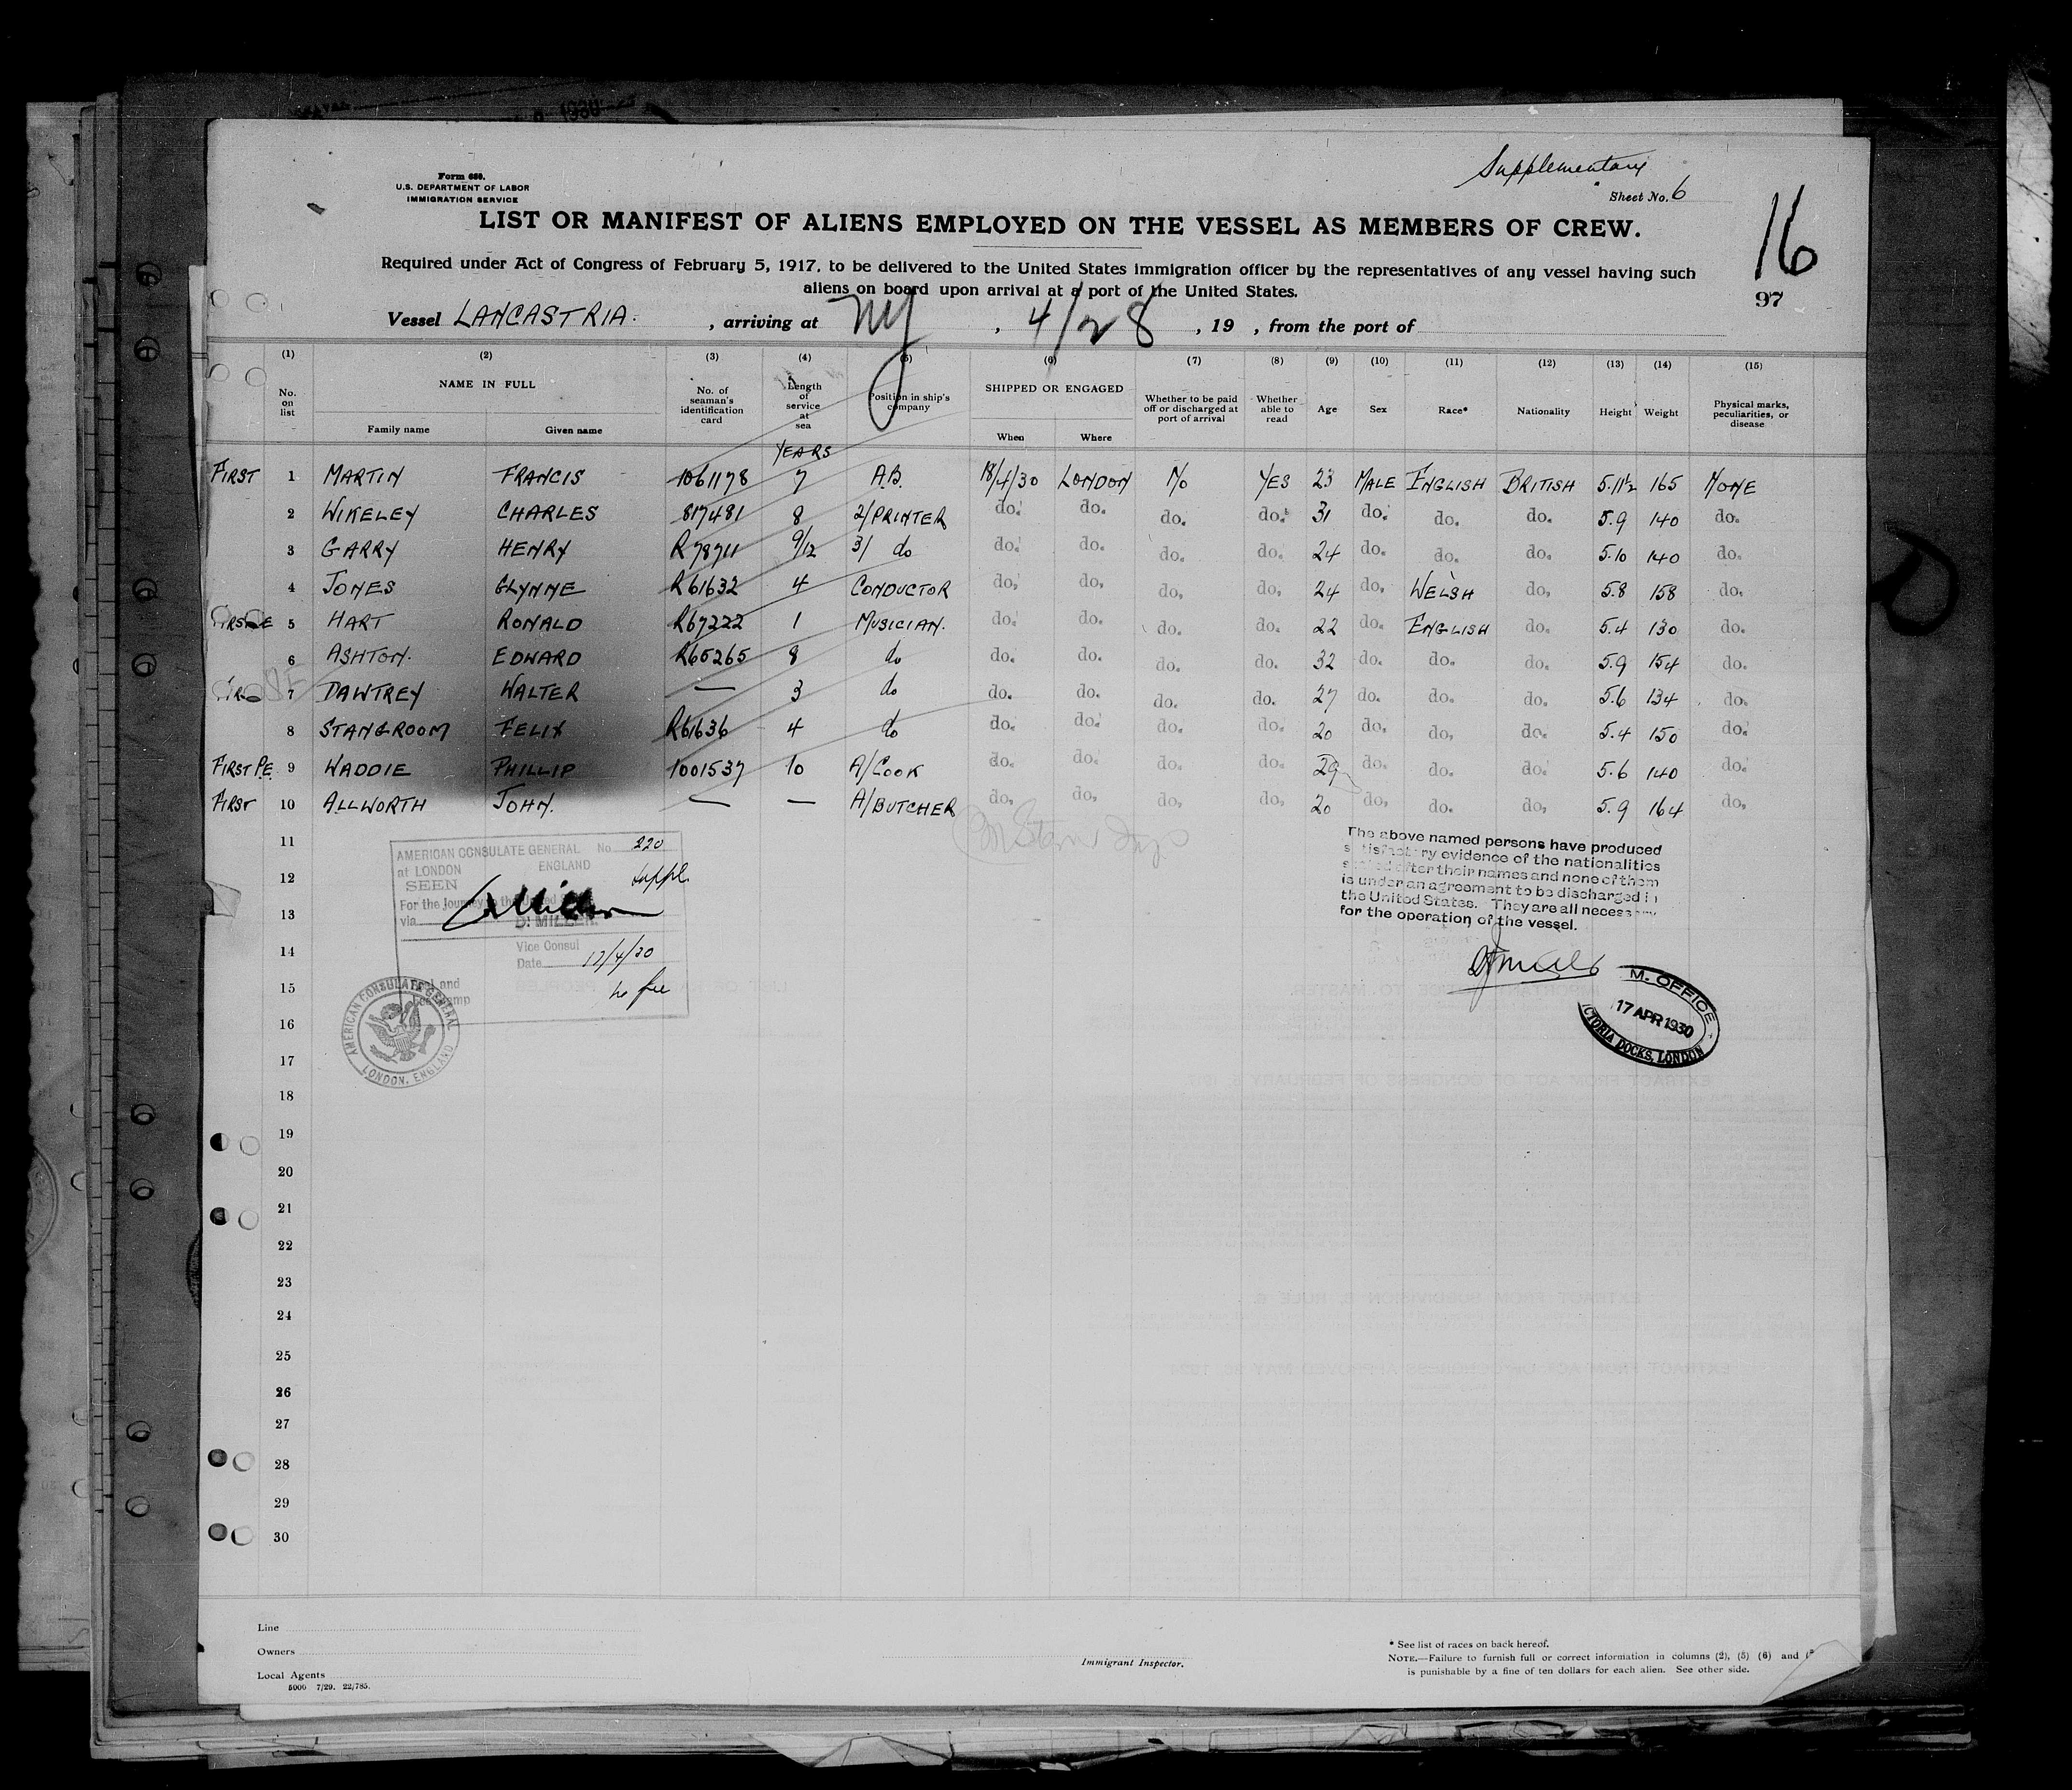 Supplementary
Form 689.
U.S. DEPARTMENT OF LABOR
IMMIGRATION SERVICE
Sheet No. 6
16
LIST OR MANIFEST OF ALIENS EMPLOYED ON THE VESSEL AS MEMBERS OF CREW.
Required under Act of Congress of February 5, 1917, to be delivered to the United States immigration officer by the representatives of any vessel having such
aliens on board upon arrival at a port of the United States.
97
Vessel LANCASTRIA. , arriving at NY , 4/28 , 19 , from the port of
(1) (2) (3) (4) (5) (6) (7) (8) (9) (10) (11) (12) (13) (14) (15)
No. on list NAME IN FULL Family name Given name No. of seaman's identification card Length of service at sea Position in ship's company SHIPPED OR ENGAGED When Where Whether to be paid off or discharged at port of arrival Whether able to read Age Sex Race* Nationality Height Weight Physical marks, peculiarities, or disease
YEARS
FIRST 1 MARTIN FRANCIS 1061178 7 A.B. 18/4/30 LONDON No YES 23 MALE ENGLISH BRITISH 5.11½ 165 NONE
2 WIKELEY CHARLES 817481 8 2/PRINTER do. do. do. do. 31 do. do. do. 5.9 140 do.
3 GARRY HENRY R78711 9/12 3/ do do. do. do. do. 24 do. do. do. 5.10 140 do.
4 JONES GLYNNE R61632 4 CONDUCTOR do. do. do. do. 24 do. WELSH do. 5.8 158 do.
5 HART RONALD R67222 1 MUSICIAN. do. do. do. do. 22 do. ENGLISH do. 5.4 130 do.
6 ASHTON. EDWARD R65265 8 do do. do. do. do. 32 do. do. do. 5.9 154 do.
7 DAWTREY WALTER — 3 do do. do. do. do. 27 do. do. do. 5.6 134 do.
8 STANGROOM FELIX R61636 4 do do. do. do. do. 20 do. do. do. 5.4 150 do.
FIRST PE. 9 WADDIE PHILLIP 1001537 10 A/COOK do. do. do. do. 29 do. do. do. 5.6 140 do.
FIRST 10 ALLWORTH JOHN. — — A/BUTCHER do. do. do. do. 20 do. do. do. 5.9 164 do.
11
12
13
14
15
16
17
18
19
20
21
22
23
24
25
26
27
28
29
30
AMERICAN CONSULATE GENERAL No 220
at LONDON ENGLAND
SEEN Suppl.
For the Journey to the United
via D. MILLER
Vice Consul
Date 17/4/30
no fee
AMERICAN CONSULATE GENERAL
LONDON, ENGLAND
The above named persons have produced
satisfactory evidence of the nationalities
stated after their names and none of them
is under an agreement to be discharged in
the United States. They are all necessary
for the operation of the vessel.
M. OFFICE
17 APR 1930
CTORIA DOCKS, LONDON
Line
Owners
Local Agents
5000 7/29. 22/785.
Immigrant Inspector.
* See list of races on back hereof.
NOTE.—Failure to furnish full or correct information in columns (2), (5) (6) and
is punishable by a fine of ten dollars for each alien. See other side.